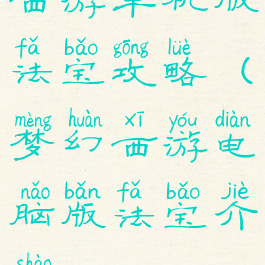 西游单机版
fǎ bǎo gōng lüè
法宝攻略（
mèng huàn xī yóu diàn
梦幻西游电
nǎo bǎn fǎ bǎo jiè
脑版法宝介
shào